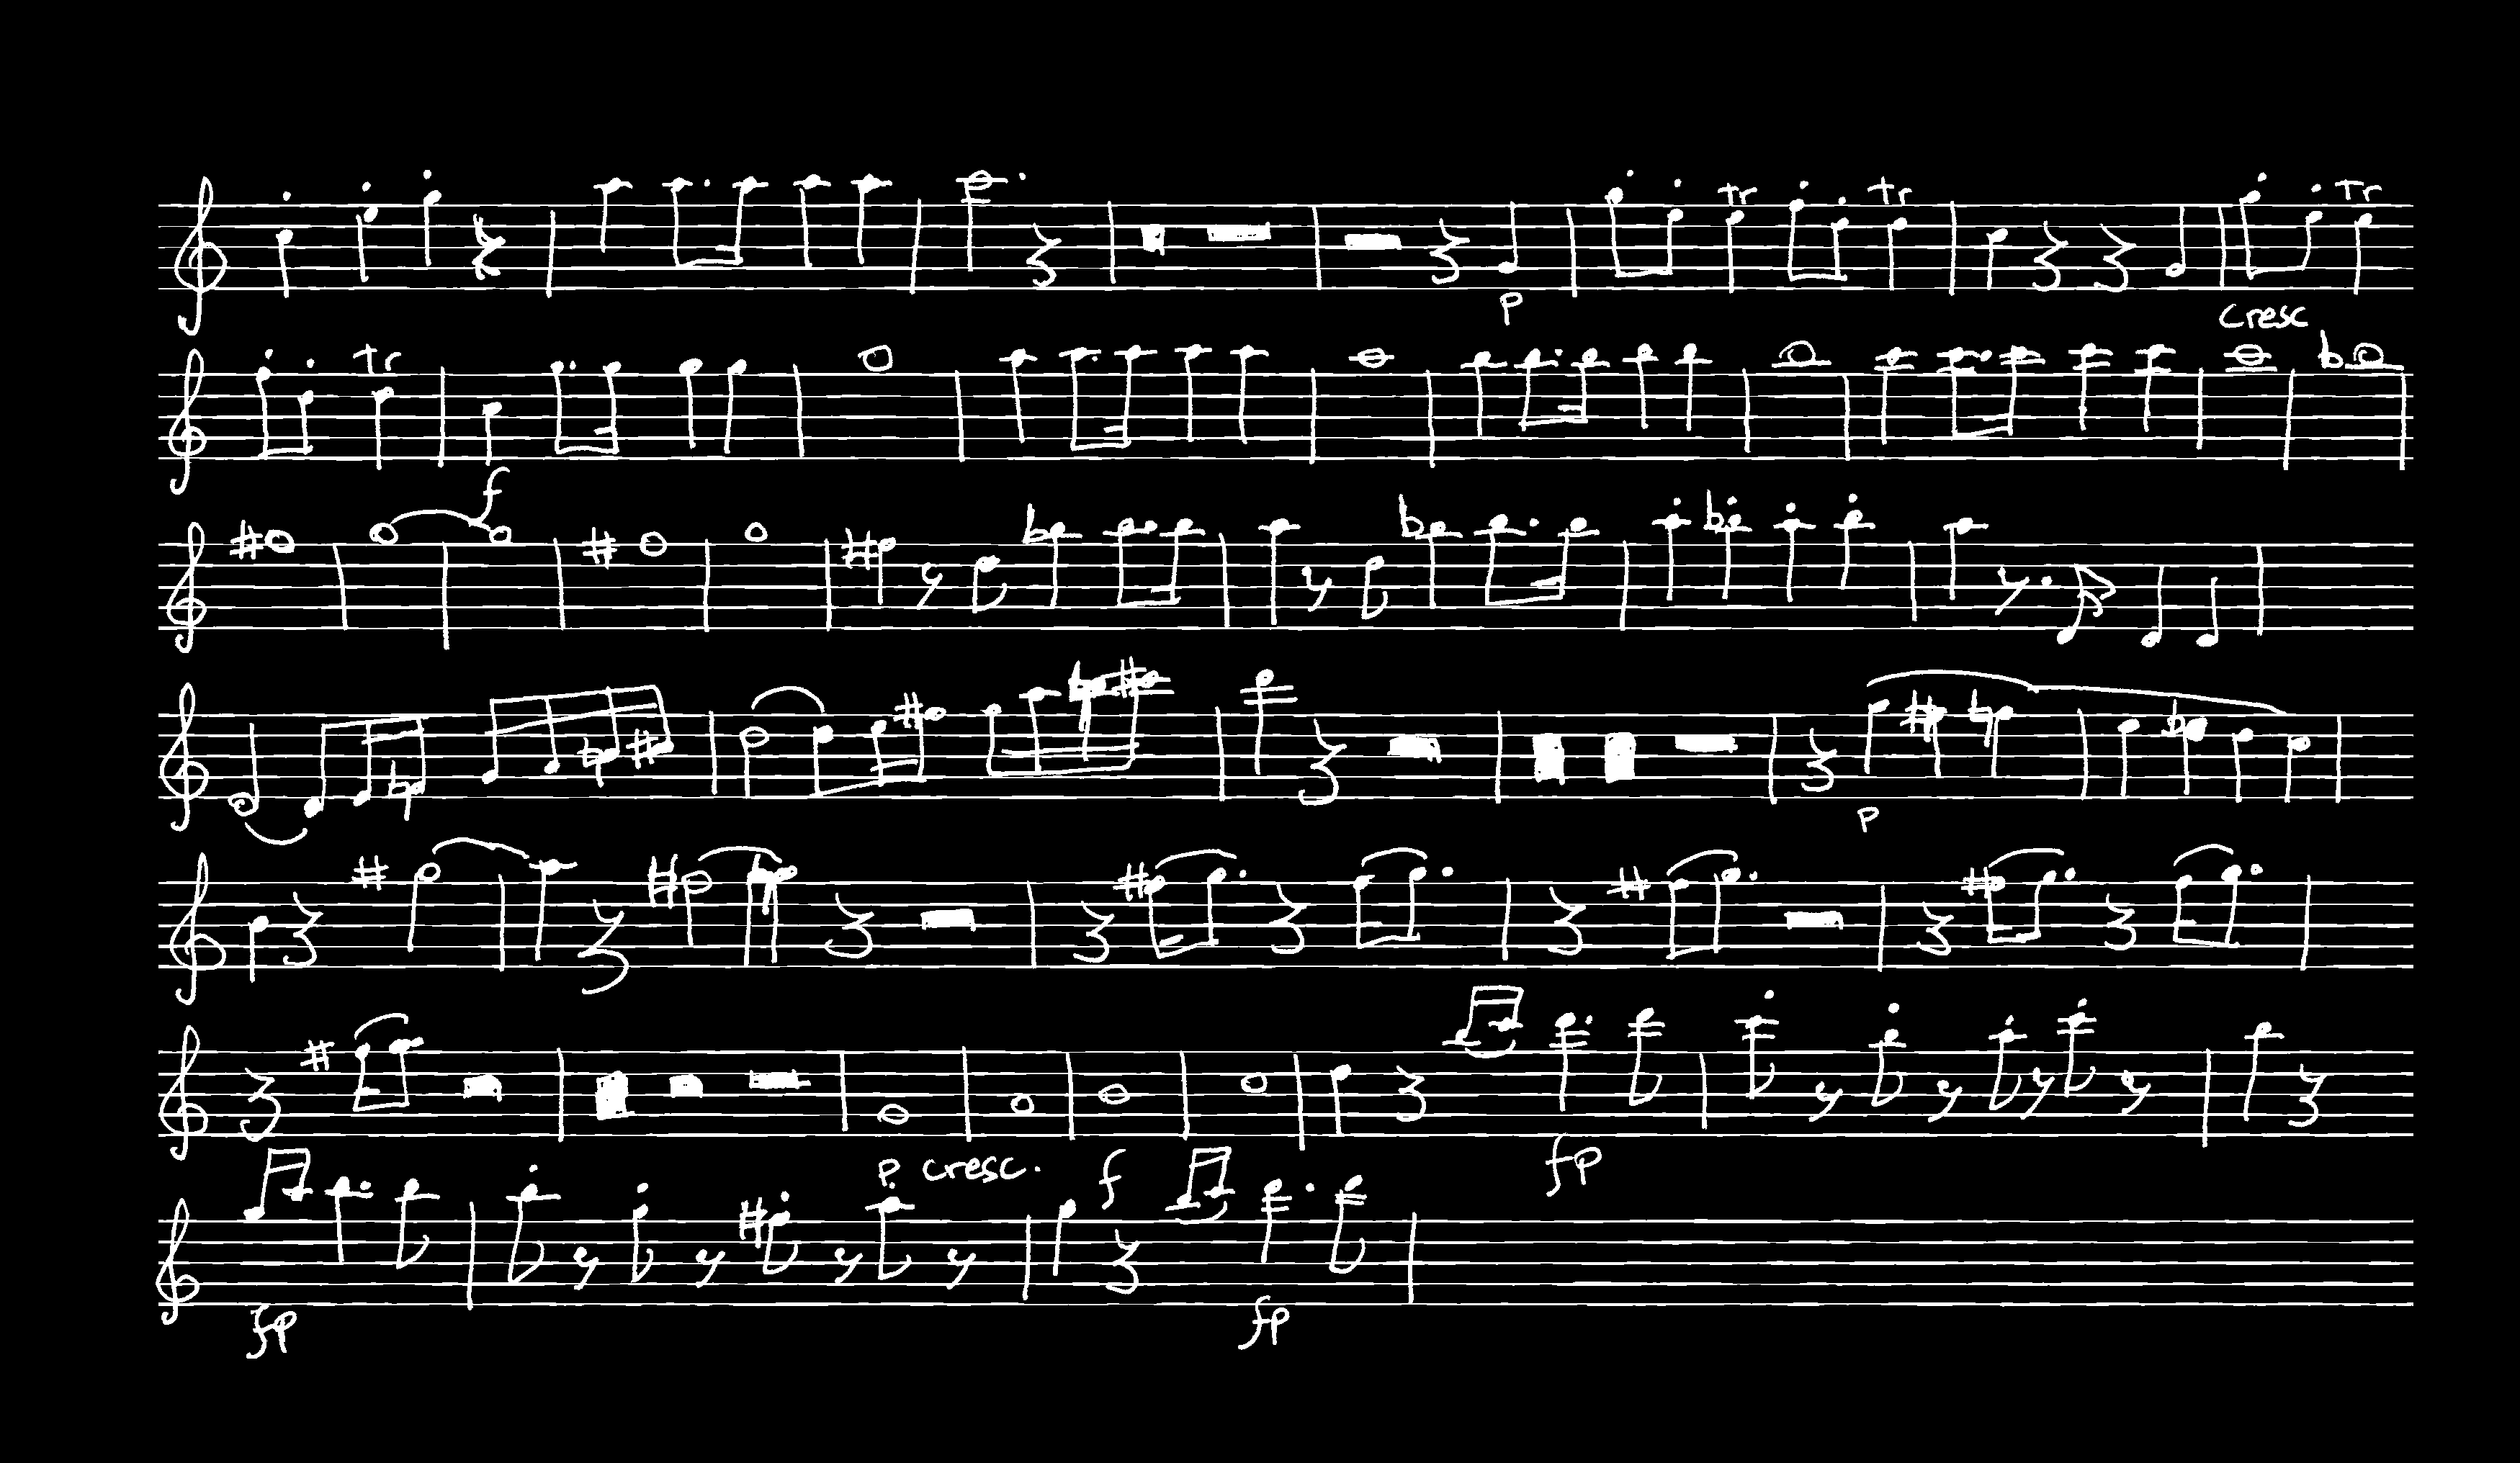 tr tr tr
p cresc
tr
f
p
fp
p. cresc. f
fp fp